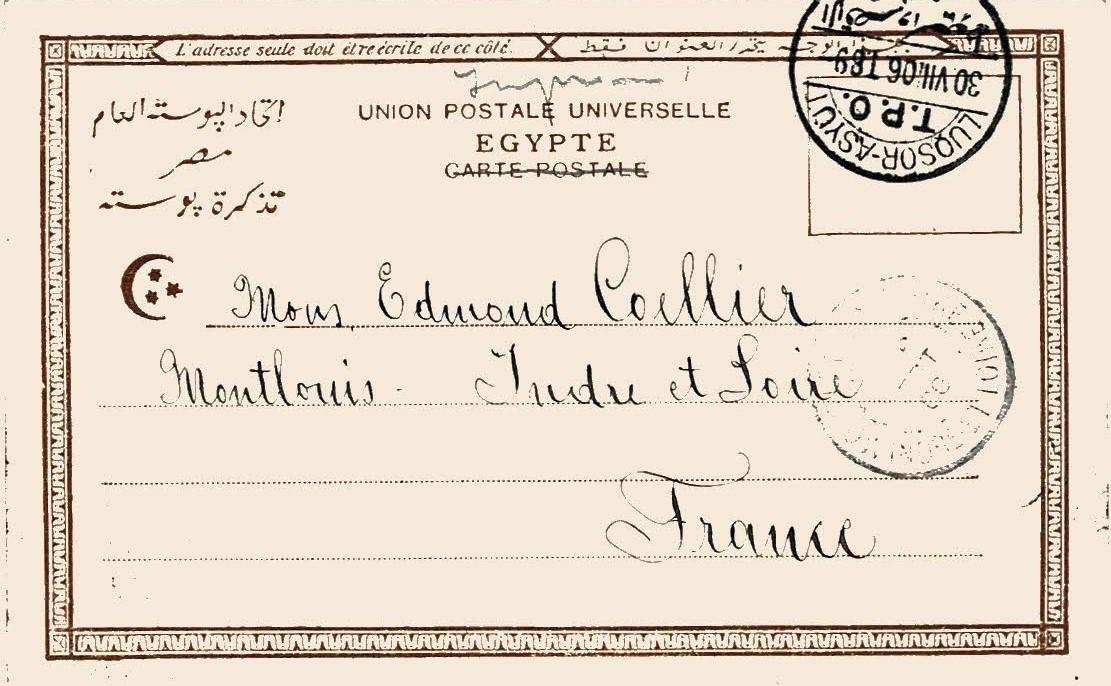 L'adresse seule doit être écrite de ce côté.
UNION POSTALE UNIVERSELLE
EGYPTE
CARTE POSTALE
اتحاد البوسته العام
مصر
تذكرة بوسته
LUQSOR-ASYUT
T.P.O.
30 VII.06 T89
Mons Edmond Coellier
Montlouis - Indre et Loire
France